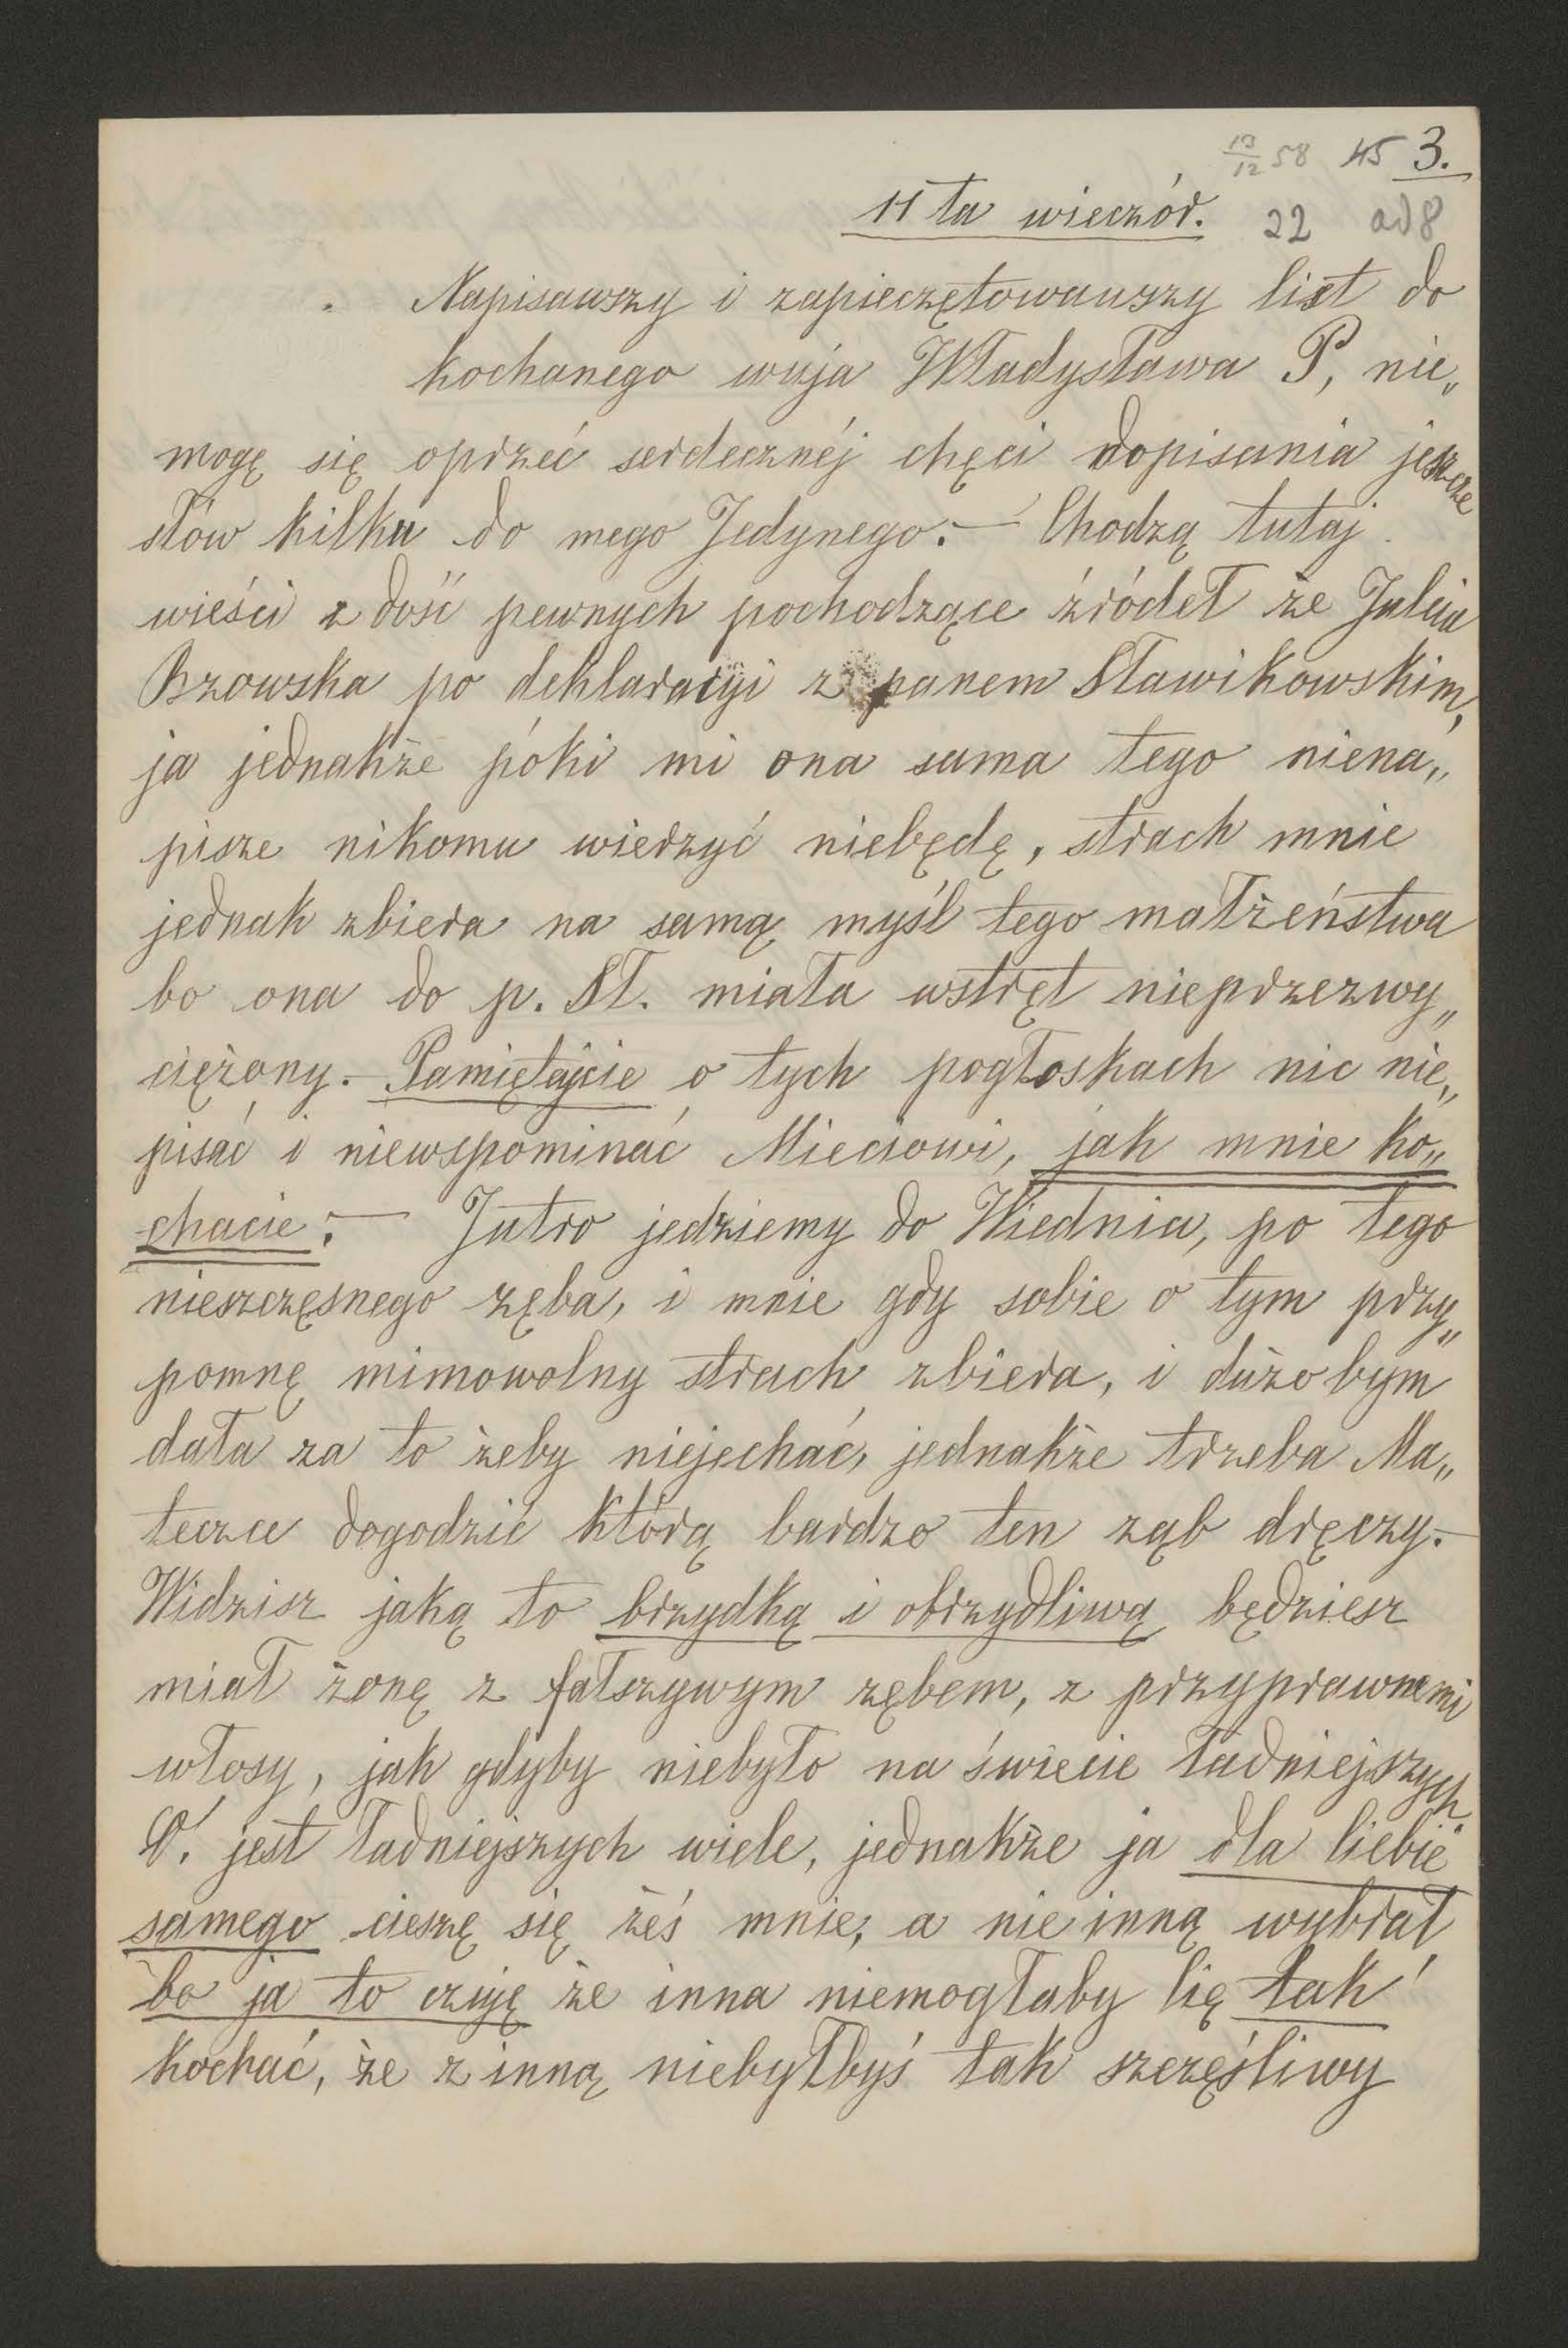 13/12 58 45 3.
11 ta wieczór. 22 ad 8
Napisawszy i zapieczętowawszy list do
kochanego wuja Władysława P, nie„
mogę się oprzeć serdecznéj chęci dopisania jeszcze
słów kilku do mego Jedynego. — Chodzą tutaj
wieści z dość pewnych pochodzące źródeł że Julcia
Brzowska po deklaracyi z panem Sławikowskim,
ja jednakże póki mi ona sama tego niena„
pisze nikomu wierzyć niebędę, strach mnie
jednak zbiera na samą myśl tego małżeństwa
bo ona do p. Sł. miała wstręt nieprzezwy„
ciężony. — Pamiętajcie o tych pogłoskach nic nie„
pisać i niewspominać Mieciowi, jak mnie ko„
chacie. — Jutro jedziemy do Wiednia, po tego
nieszczęsnego zęba, i mnie gdy sobie o tym przy„
pomnę mimowolny strach zbiera, i dużo bym
dała za to żeby niejechać, jednakże trzeba Ma„
teczce dogodzić którą bardzo ten ząb dręczy. —
Widzisz jaką to brzydką i obrzydliwą będziesz
miał żonę z fałszywym zębem, z przyprawnemi
włosy, jak gdyby niebyło na świecie ładniejszych.
O! jest ładniejszych wiele, jednakże ja dla Ciebie
samego cieszę się żeś mnie, a nie inną wybrał
bo ja to czuję że inna niemogłaby Cię tak
kochać, że z inną niebyłbyś tak szczęśliwy